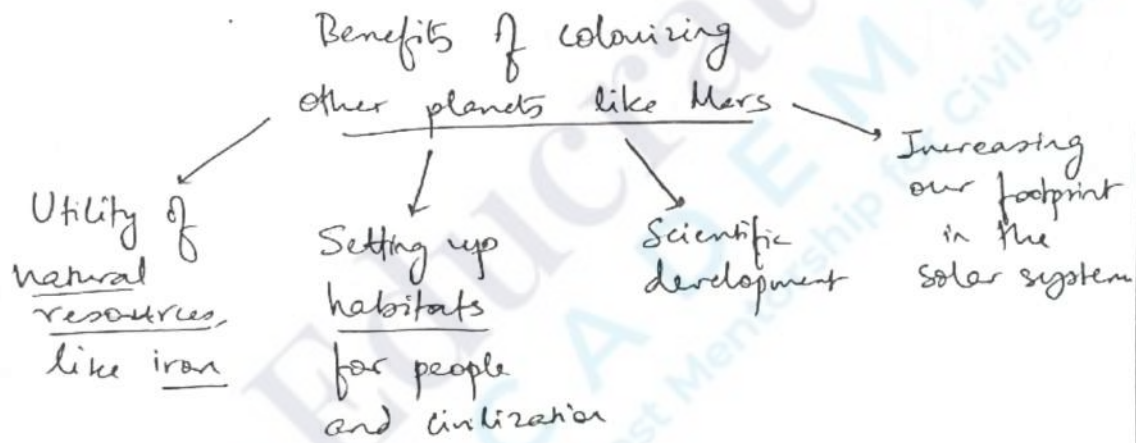 Benefits of colonizing
other planets like Mars
Utility of
natural
resources,
like iron
Setting up
habitats
for people
and civilization
Scientific
development
Increasing
our footprint
in the
solar system
Educrat
ACADEM
Mentorship for Civil Se